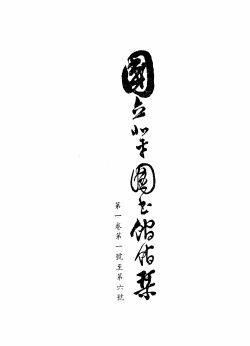 國立北平圖書館館栞
第一卷第一號至第六號